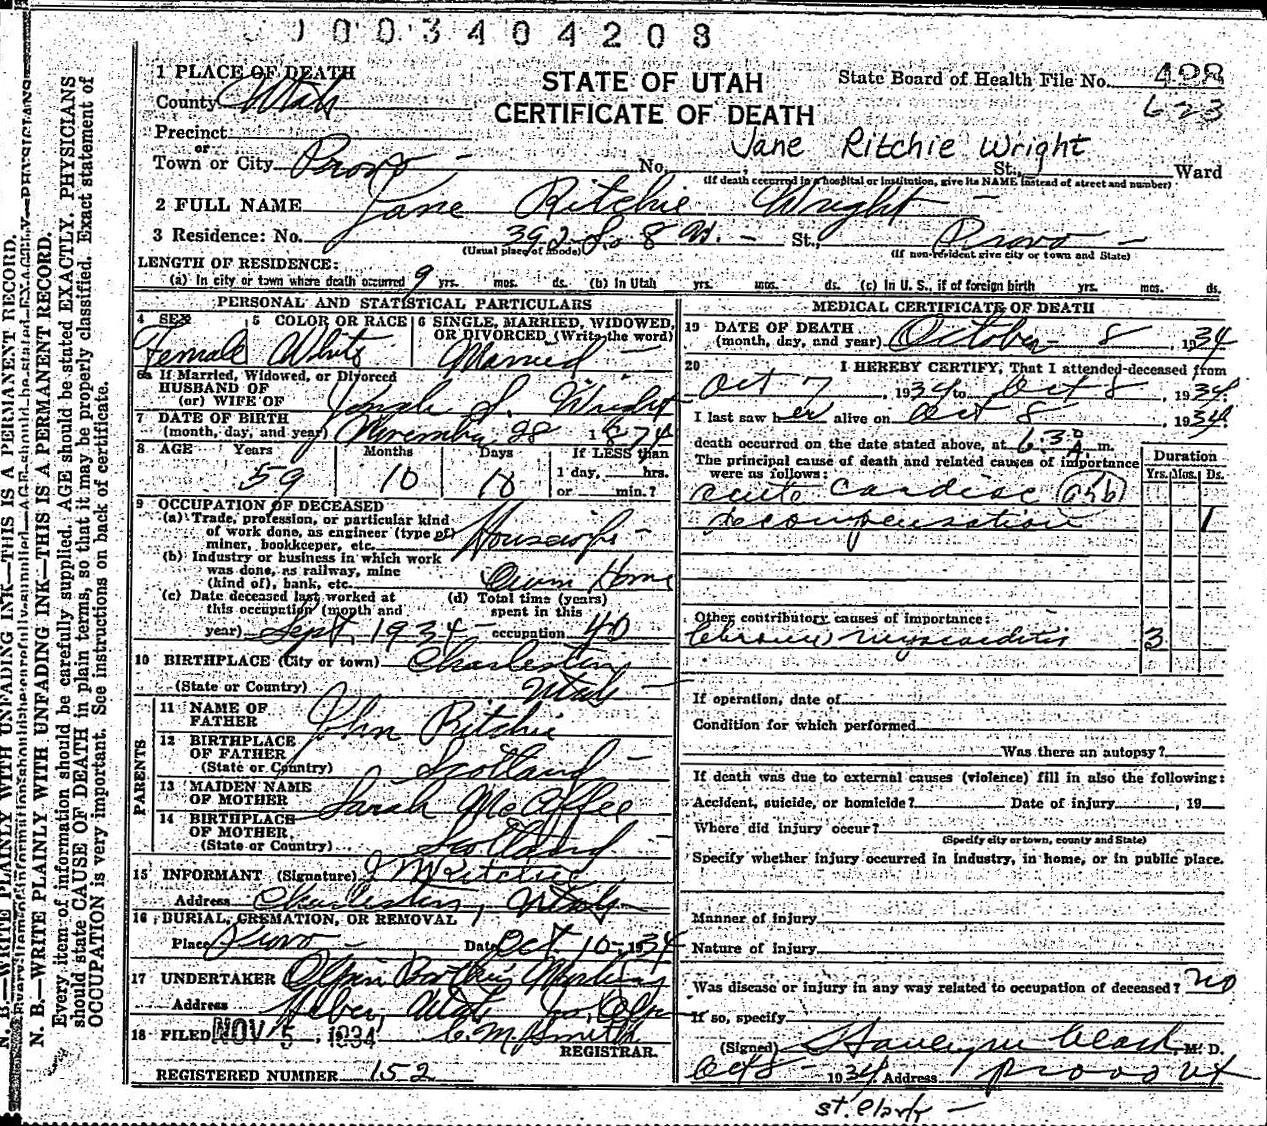 1003404208
1 PLACE OF DEATH
STATE OF UTAH
CERTIFICATE OF DEATH
State Board of Health File No. 498
623
County Utah
Precinct
or
Town or City Provo
Jane Ritchie Wright
No. St., Ward
(If death occurred in a hospital or institution, give its NAME instead of street and number)
2 FULL NAME Jane Ritchie Wright
3 Residence: No. 392 So 8 W. St., Provo
(Usual place of abode) (If non-resident give city or town and State)
LENGTH OF RESIDENCE:
(a) In city or town where death occurred 9 yrs. mos. ds. (b) In Utah yrs. mos. ds. (c) In U. S., if of foreign birth yrs. mos. ds.
PERSONAL AND STATISTICAL PARTICULARS
4 SEX Female
5 COLOR OR RACE White
6 SINGLE, MARRIED, WIDOWED, OR DIVORCED (Write the word) Married
6a If Married, Widowed, or Divorced
HUSBAND OF
(or) WIFE OF S. Wright
7 DATE OF BIRTH
(month, day, and year) November 28 1874
8 AGE Years Months Days If LESS than
59 10 10 1 day, hrs.
or min.?
9 OCCUPATION OF DECEASED
(a) Trade, profession, or particular kind
of work done, as engineer (type of)
miner, bookkeeper, etc. Housewife
(b) Industry or business in which work
was done, as railway, mine
(kind of), bank, etc. Own Home
(c) Date deceased last worked at
this occupation (month and
year) Sept. 1934
(d) Total time (years)
spent in this
occupation 40
10 BIRTHPLACE (City or town) Charleston
(State or Country) Utah
PARENTS
11 NAME OF
FATHER John Ritchie
12 BIRTHPLACE
OF FATHER
(State or Country) Scotland
13 MAIDEN NAME
OF MOTHER Sarah McAffee
14 BIRTHPLACE
OF MOTHER
(State or Country) Scotland
15 INFORMANT (Signature) J M Ritchie
Address Charleston, Utah
16 BURIAL, CREMATION, OR REMOVAL
Place Provo Date Oct 10 1934
17 UNDERTAKER Olpin Brothers
Address Heber, Utah
18 FILED NOV 5 1934 C. M. Smith
REGISTRAR.
REGISTERED NUMBER 152
MEDICAL CERTIFICATE OF DEATH
19 DATE OF DEATH
(month, day, and year) October 8, 1934
20 I HEREBY CERTIFY, That I attended deceased from
Oct 7, 1934 to Oct 8, 1934.
I last saw her alive on Oct 8, 1934.
death occurred on the date stated above, at 6:30 A. m.
The principal cause of death and related causes of importance
were as follows:
Duration
Yrs. Mos. Ds.
acute cardiac
decompensation 1
Other contributory causes of importance:
Chronic myocarditis 3
If operation, date of
Condition for which performed
Was there an autopsy?
If death was due to external causes (violence) fill in also the following:
Accident, suicide, or homicide? Date of injury , 19
Where did injury occur?
(Specify city or town, county and State)
Specify whether injury occurred in industry, in home, or in public place.
Manner of injury
Nature of injury
Was disease or injury in any way related to occupation of deceased? no
If so, specify
(Signed) Clark, M. D.
Oct 8 1934 Address Provo Ut
N. B.—WRITE PLAINLY WITH UNFADING INK—THIS IS A PERMANENT RECORD.
N. B.—WRITE PLAINLY WITH UNFADING INK—THIS IS A PERMANENT RECORD.
Every item of information should be carefully supplied. AGE should be stated EXACTLY. PHYSICIANS
should state CAUSE OF DEATH in plain terms, so that it may be properly classified. Exact statement of
OCCUPATION is very important. See instructions on back of certificate.